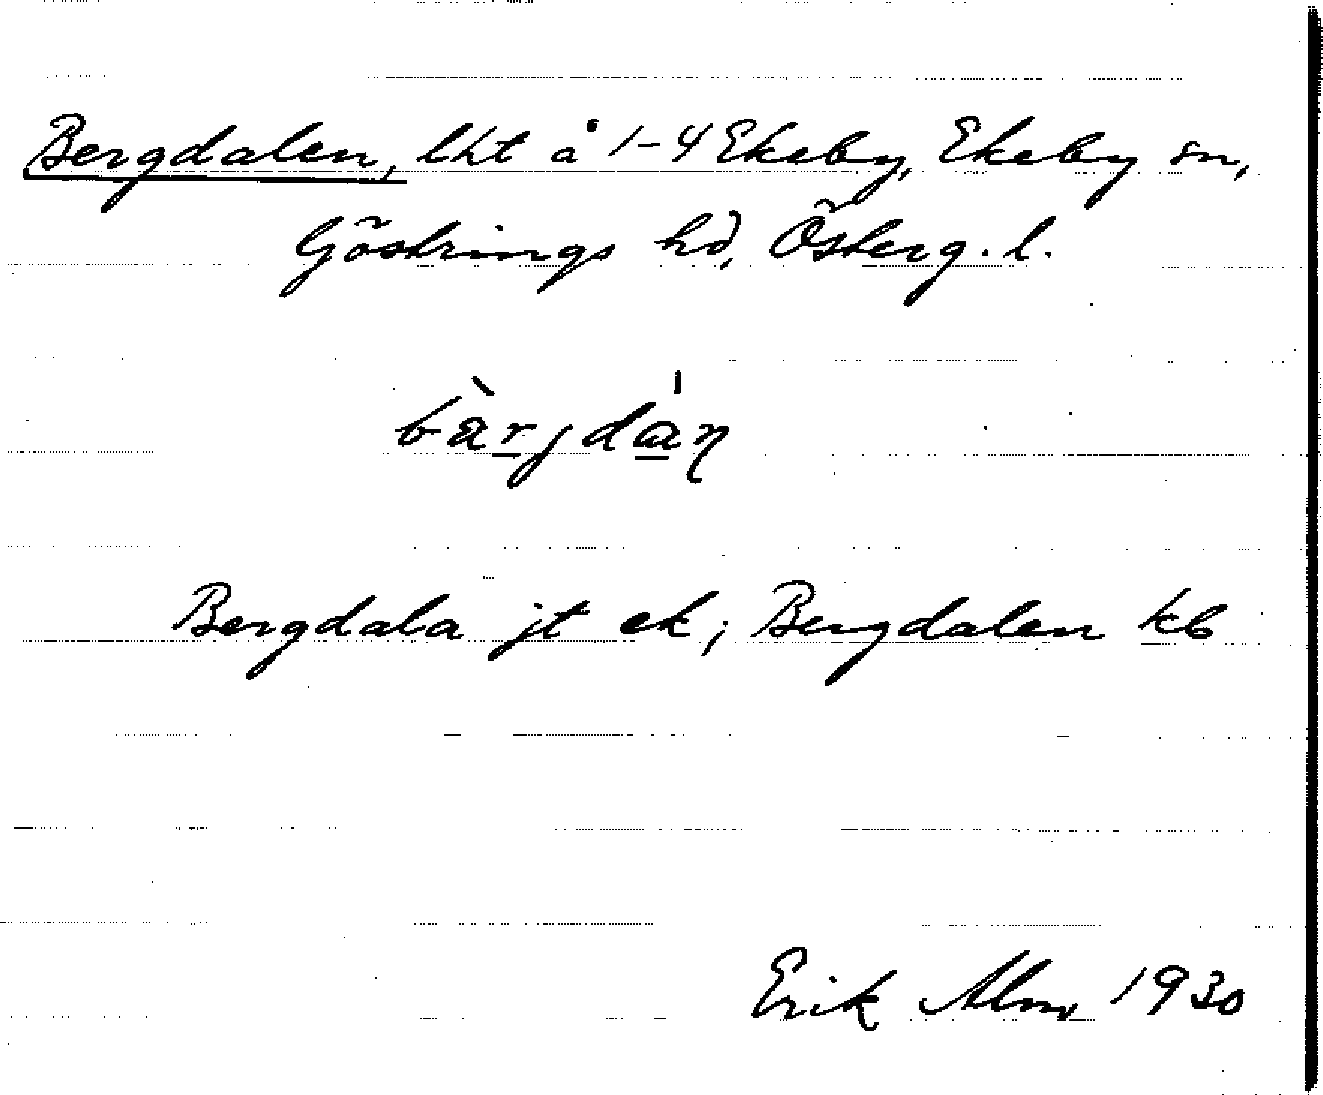 Bergdalen, lht å 1-4 Ekeby, Ekeby sn,
Göstrings hd, Österg. l.
bàrjdán
Bergdala jt ek; Bergdalen kb
Erik Alm 1930